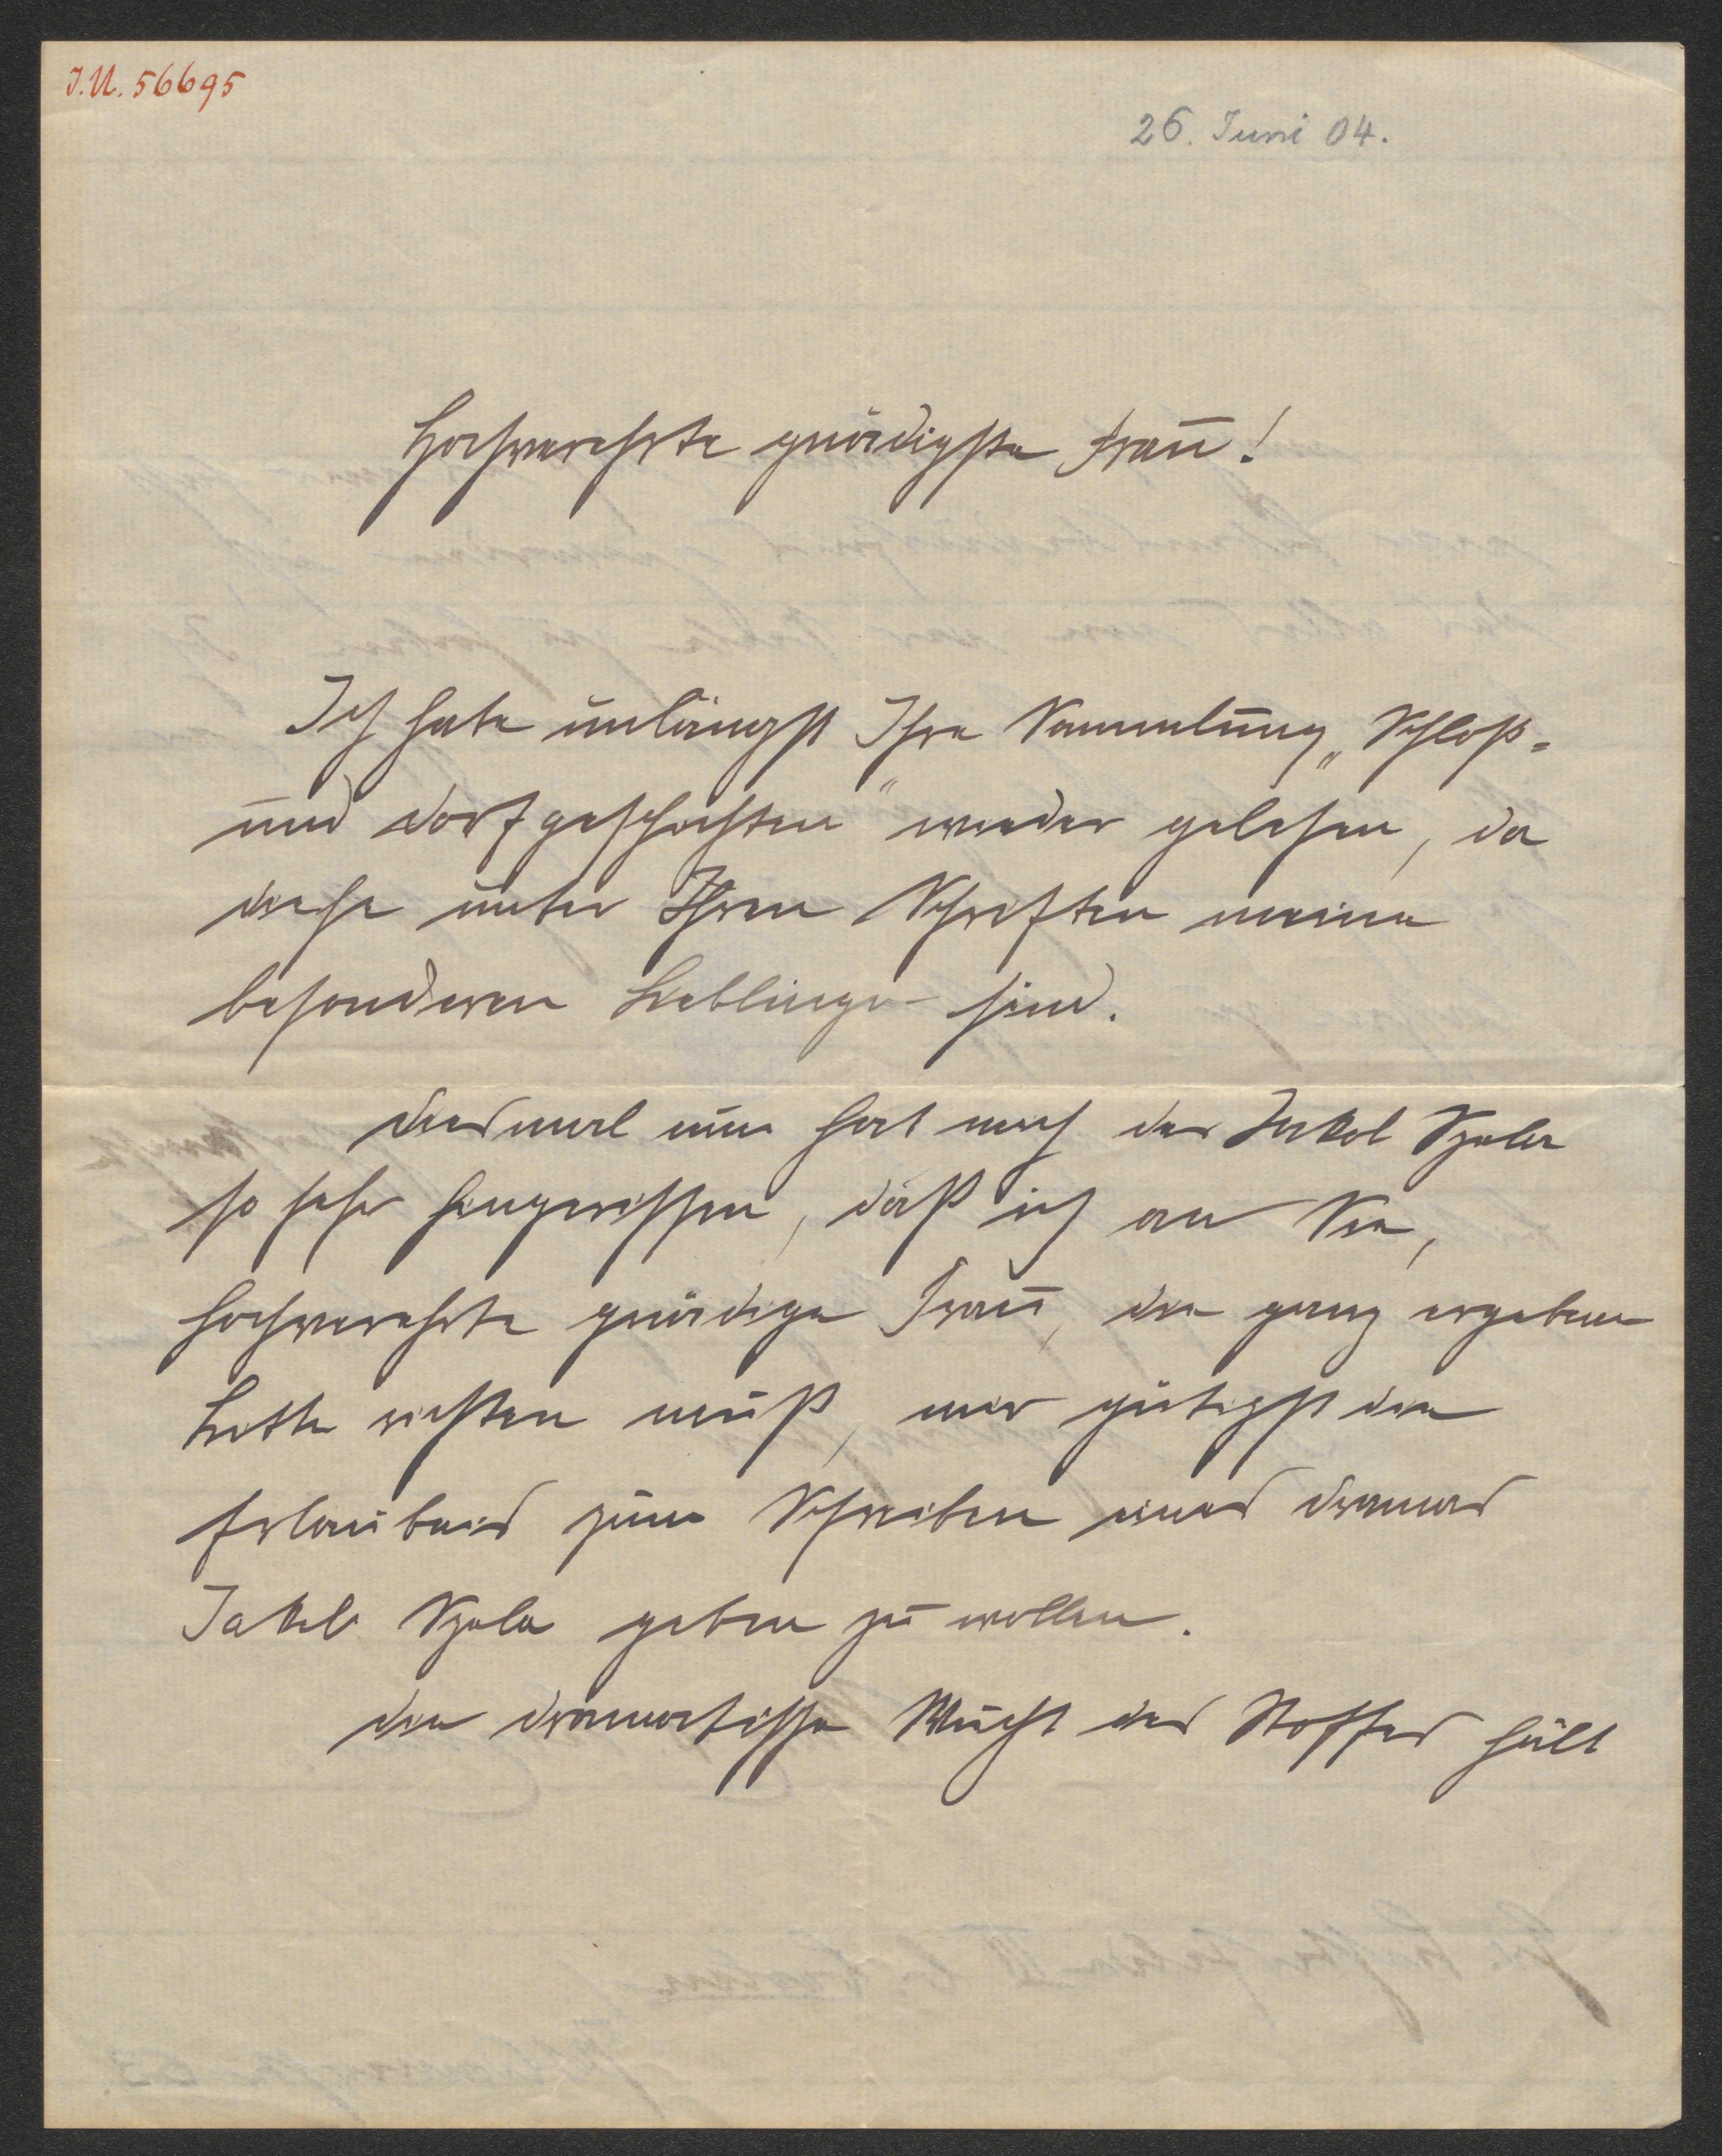 J.N. 56695
26. Juni 04.
Hochverehrte gnädigste Frau!
Ich habe unlängst Ihre Sammlung „Schloß-
und Dorfgeschichten" wieder gelesen, da
diese unter Ihren Schriften meine
besonderen Lieblinge sind.
Diesmal nun hat mich der Jakob Szela
so sehr hingerissen, daß ich an Sie,
hochverehrte gnädige Frau, die ganz ergebene
Bitte richten muß, mir gütigst die
Erlaubnis zum Schreiben eines Dramas
Jakob Szela geben zu wollen.
Die dramatische Wucht des Stoffes hält